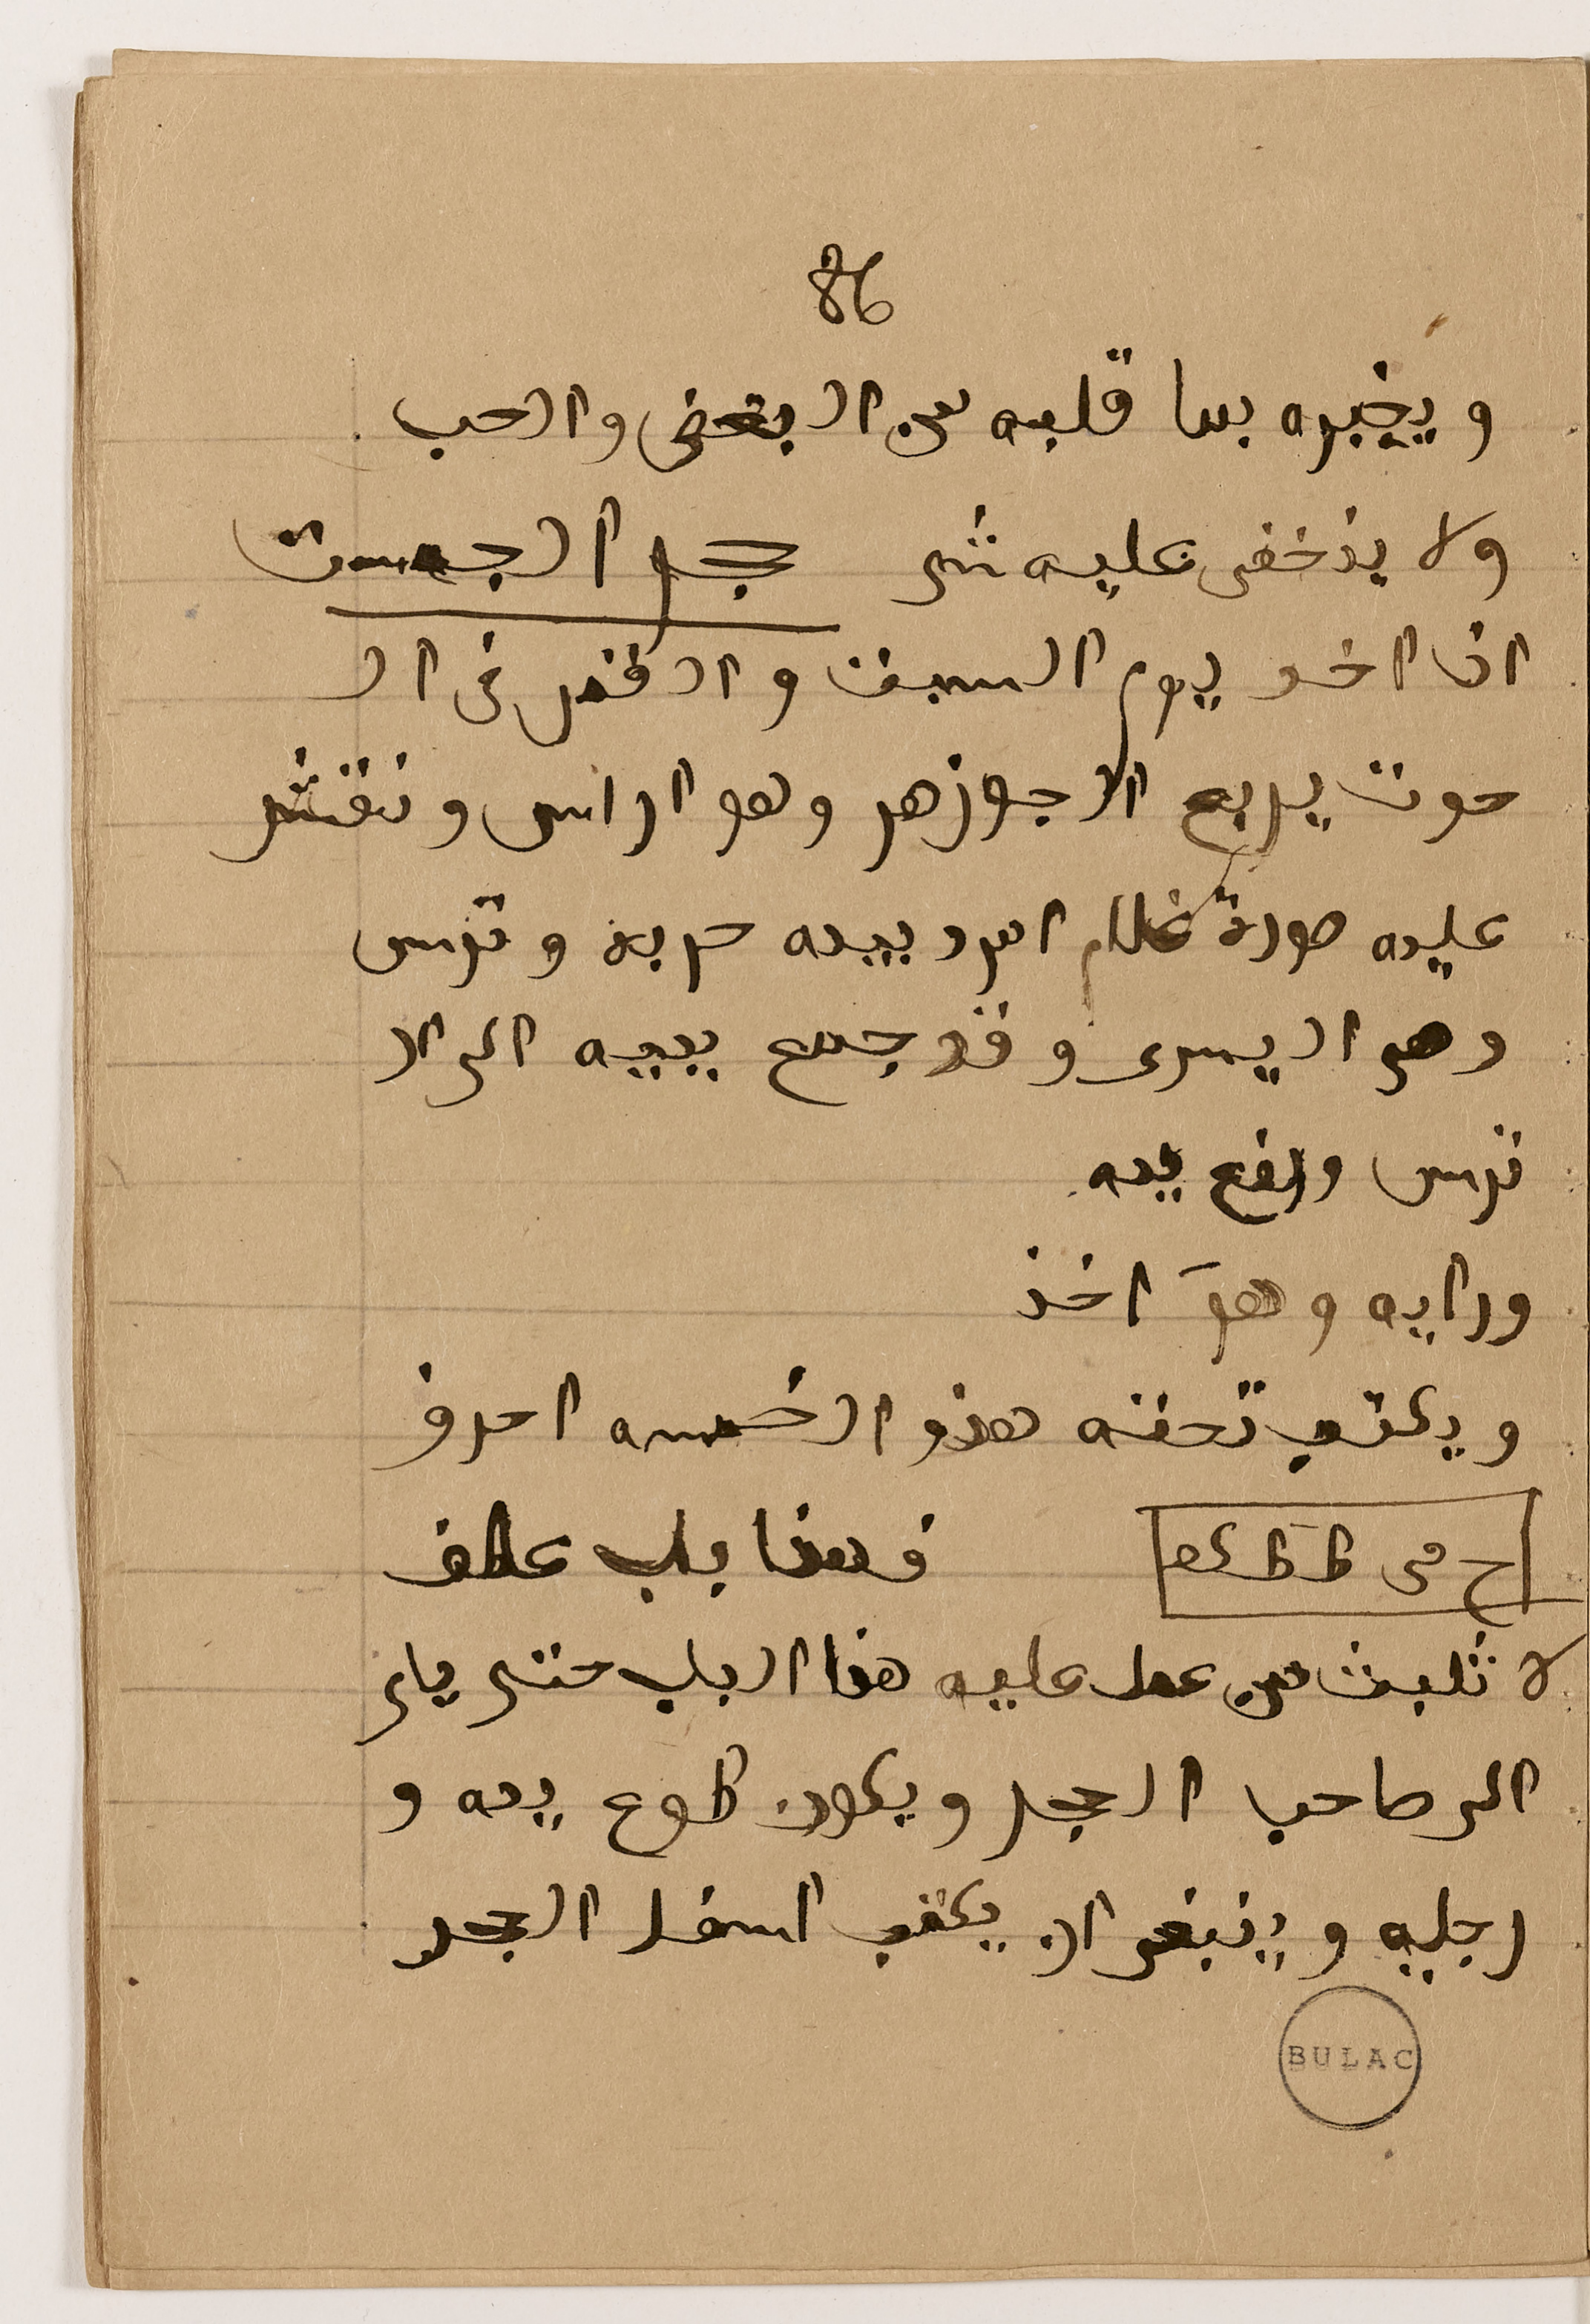 86
ويخبره بما قلبه من البغض والحب
ولا يذخفى عليه شى حجر الجمست
اذا اخد يوم السبت والقمر فى ال
حوت يربع الاجوزهر وهو الراس وتنقش
عليه صورة غلام امرد بيده حربة وترس
وهى اليسرى وقد جمع يديه الى ال
ترس ورافع يده
ورايه وهو اخذ
ويكتب تحته هذه الخمسه احرف
فهذا باب عطف
لا تلبث من عمل عليه هذا الباب حتى ياى
الى صاحب الحجر ويكون طوع يده و
رجليه وينبغى ان يكتب اسفل الحجر
BULAC